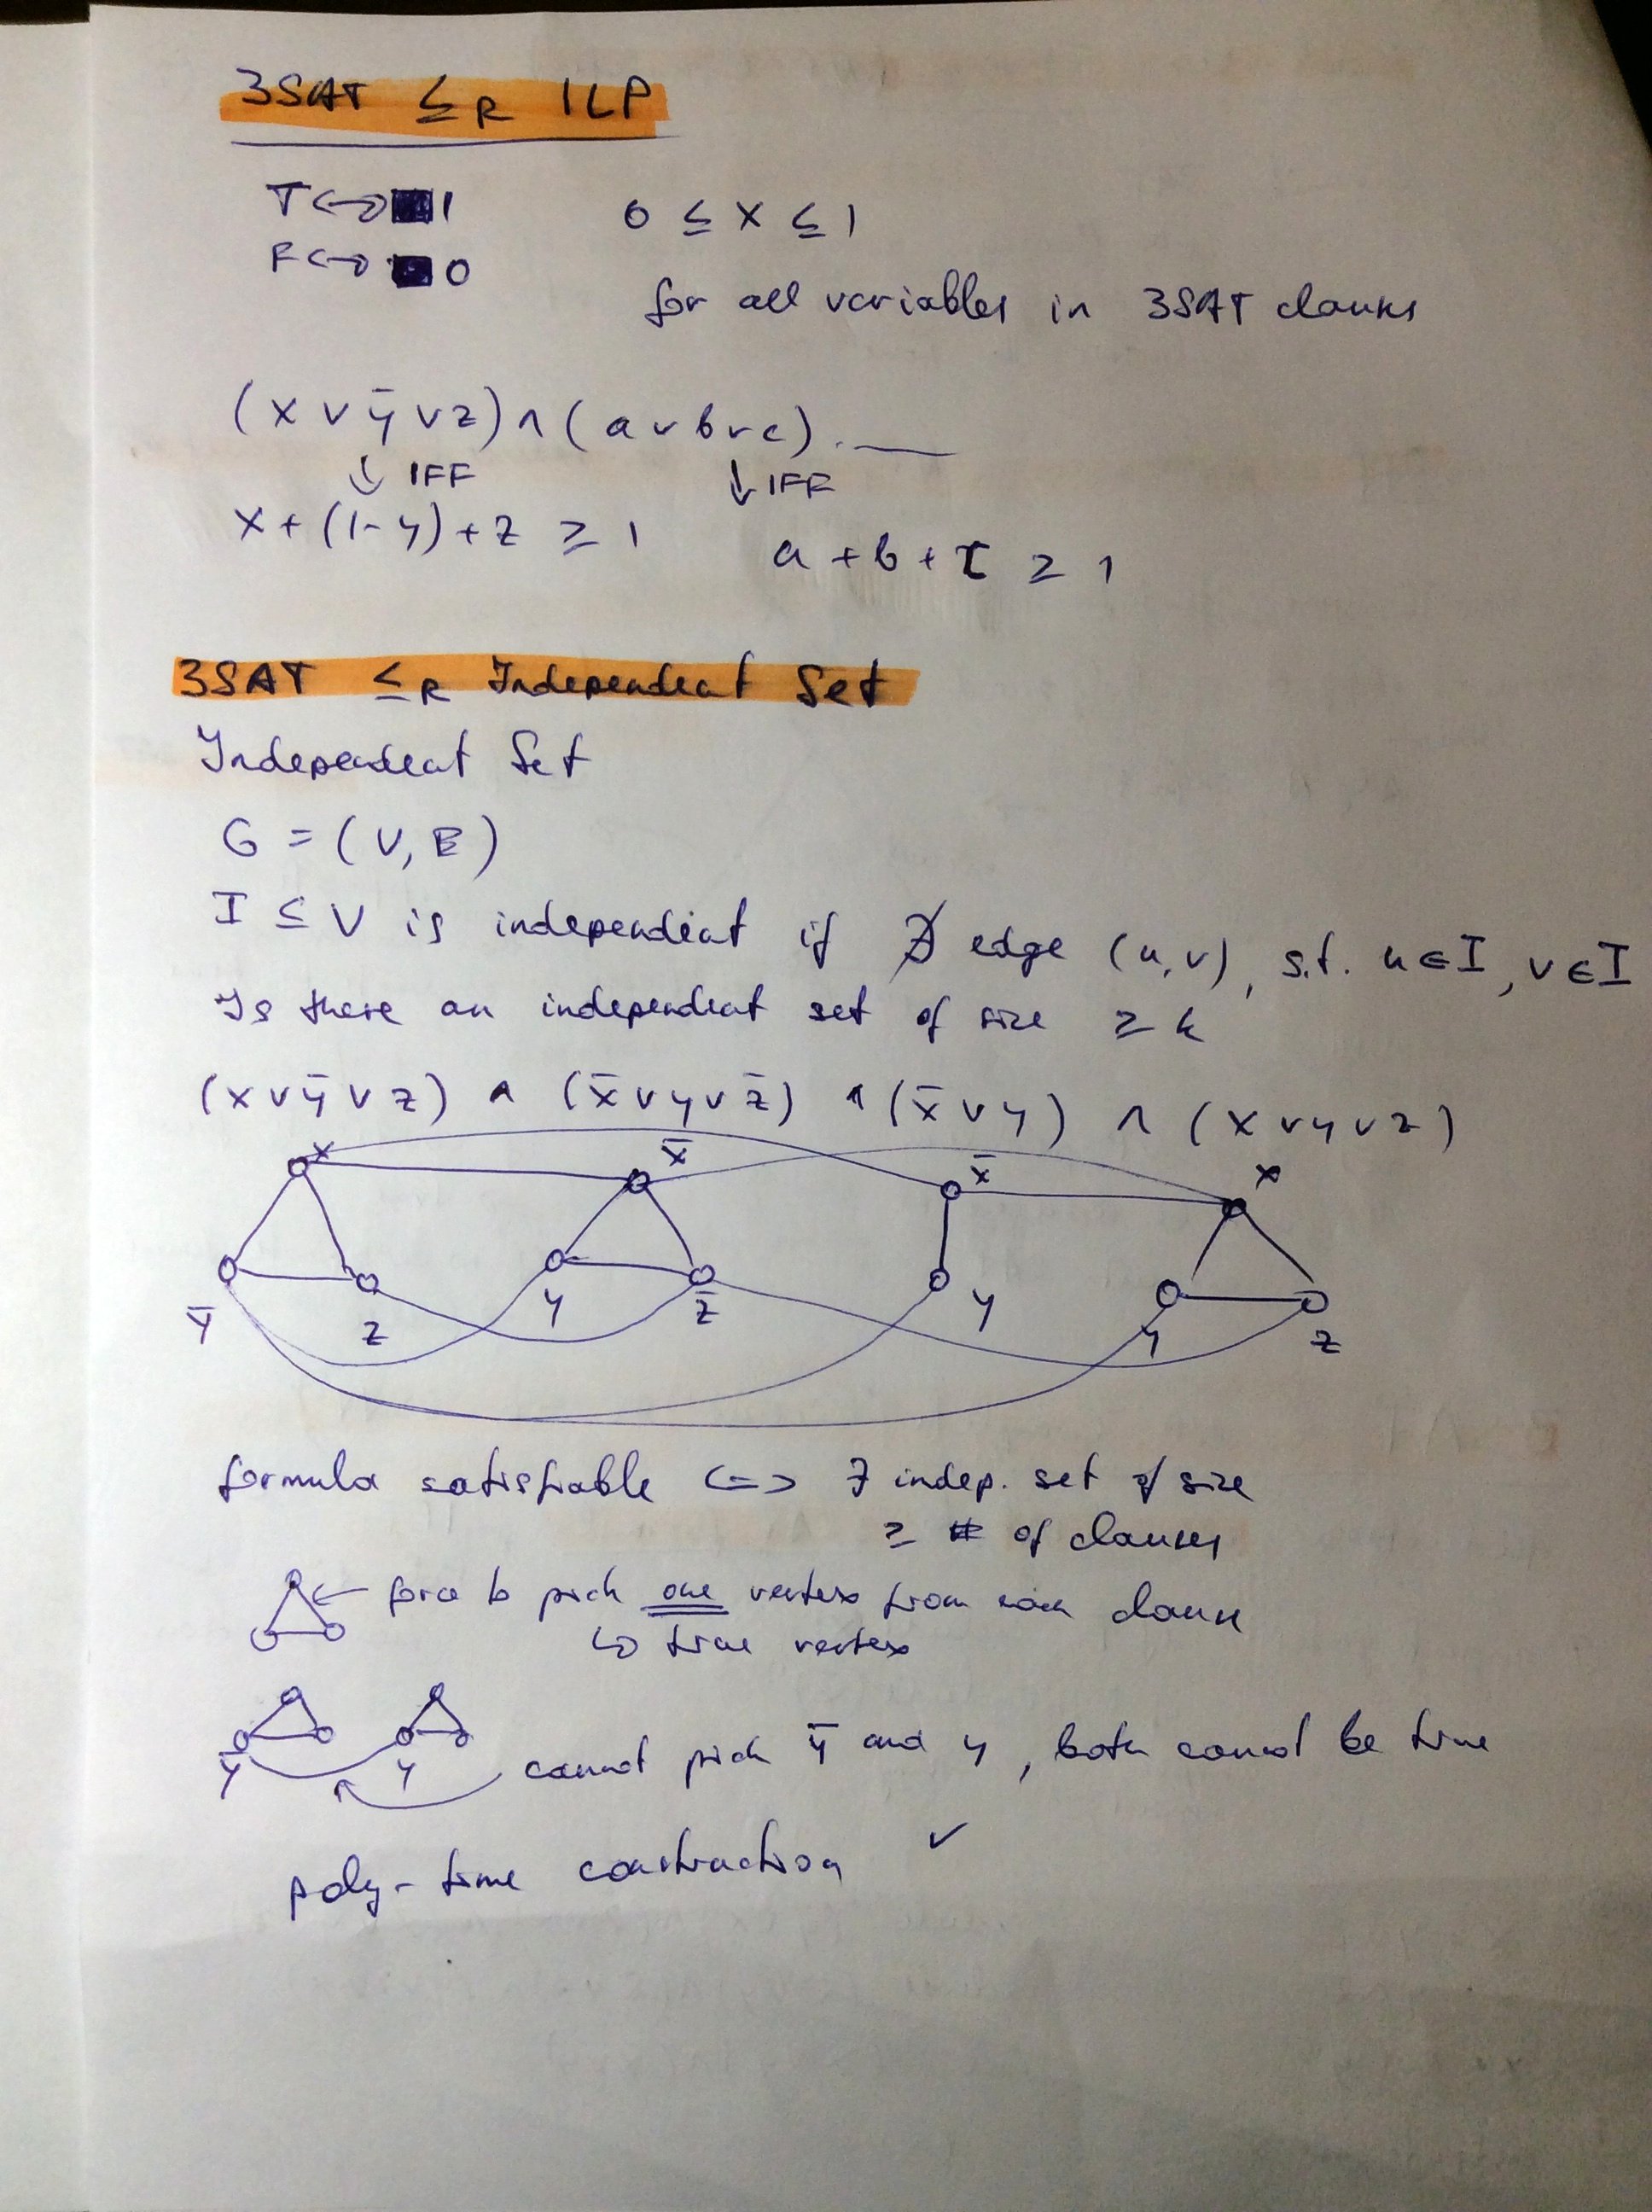 3SAT ≤R ILP
T ↔ 1
0 ≤ x ≤ 1
F ↔ 0
for all variables in 3SAT clauses
(x ∨ ȳ ∨ z) ∧ (a ∨ b ∨ c) . __
↓ IFF ↓ IFF
x + (1-y) + z ≥ 1
a + b + c ≥ 1
3SAT ≤R Independent Set
Independent Set
G = (V, E)
I ⊆ V is independent if ∄ edge (u,v), s.t. u ∈ I, v ∈ I
Is there an independent set of size ≥ k
(x ∨ ȳ ∨ z) ∧ (x̄ ∨ y ∨ z̄) ∧ (x̄ ∨ y) ∧ (x ∨ y ∨ z)
x x̄ x̄ x
ȳ z y z̄ y y z
formula satisfiable ⇔ ∃ indep. set of size
≥ # of clauses
← force to pick one vertex from each clause
↳ true vertex
ȳ y cannot pick ȳ and y, both cannot be true
poly-time construction ✓